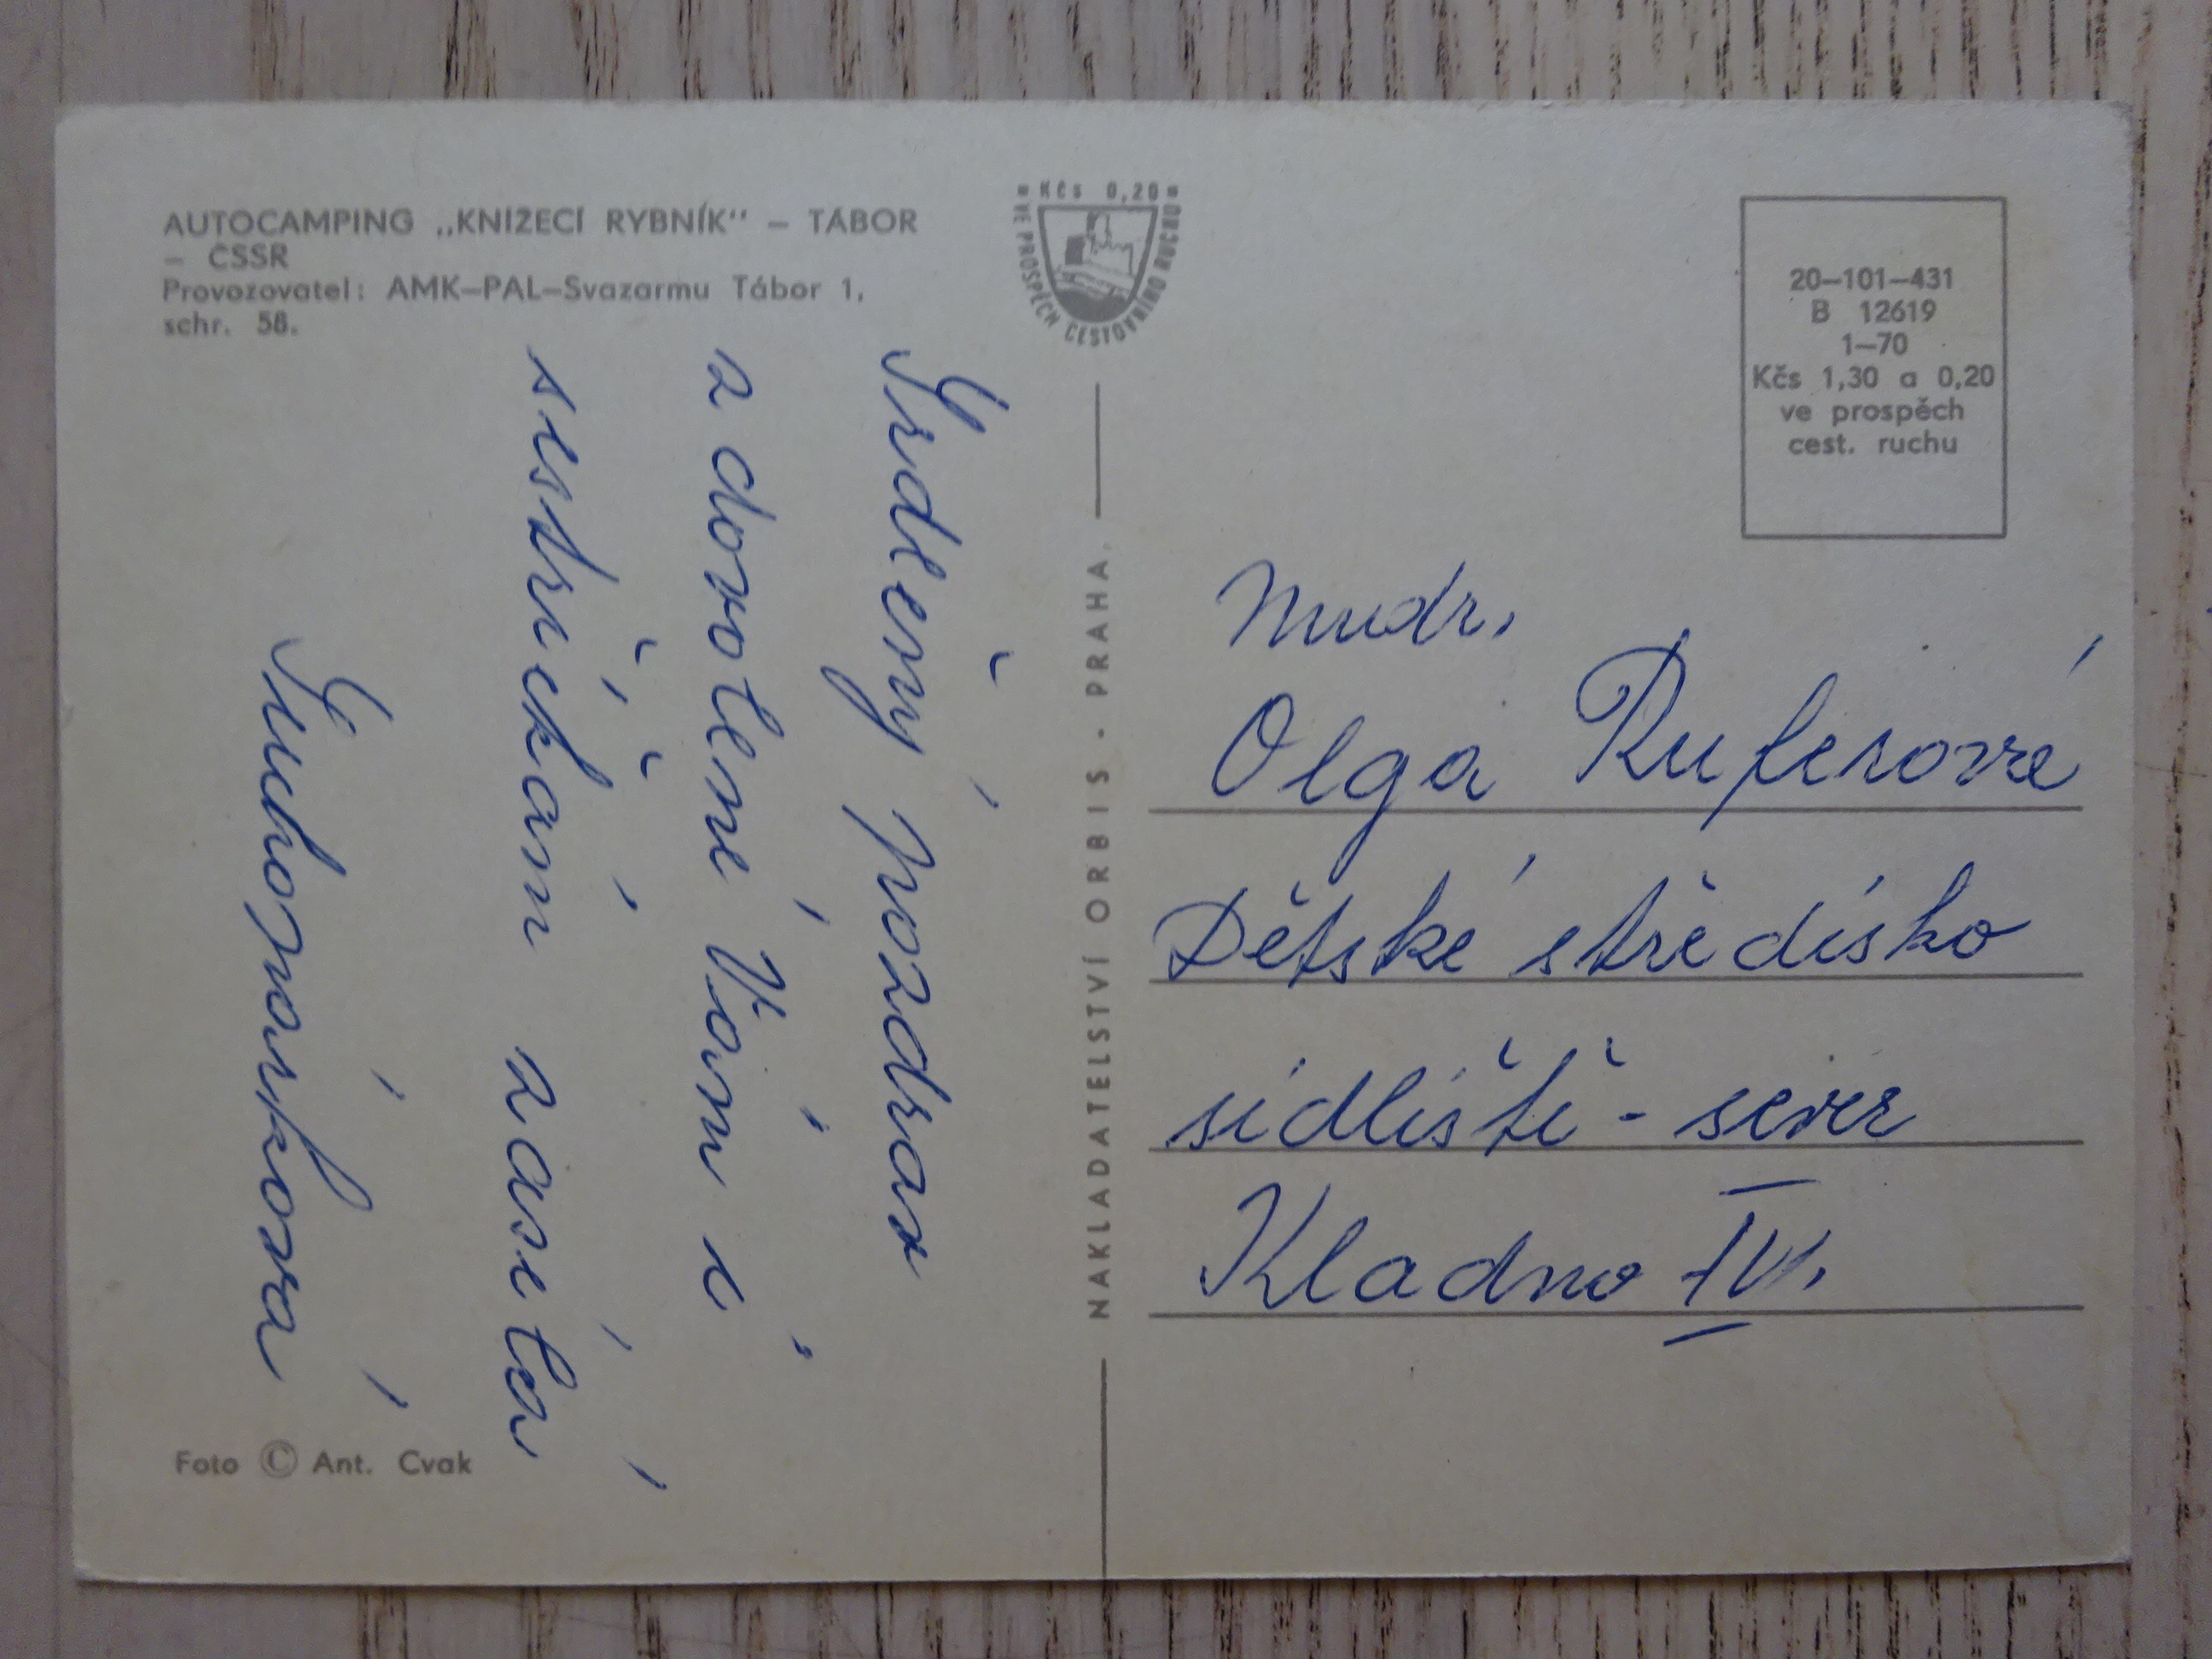 AUTOCAMPING „KNIŽECÍ RYBNÍK“ – TÁBOR
– ČSSR
Provozovatel: AMK–PAL–Svazarmu Tábor 1,
schr. 58.
Kčs 0,20
VE PROSPĚCH CESTOVNÍHO RUCHU
20–101–431
B 12619
1–70
Kčs 1,30 a 0,20
ve prospěch
cest. ruchu
Srdečný pozdrav
z dovolené Vám i
sestřičkám zasílá
Suchopárková
Foto © Ant. Cvak
NAKLADATELSTVÍ ORBIS - PRAHA.
Mudr.
Olga Ruferová
Dětské středisko
sídliště - sever
Kladno IV.